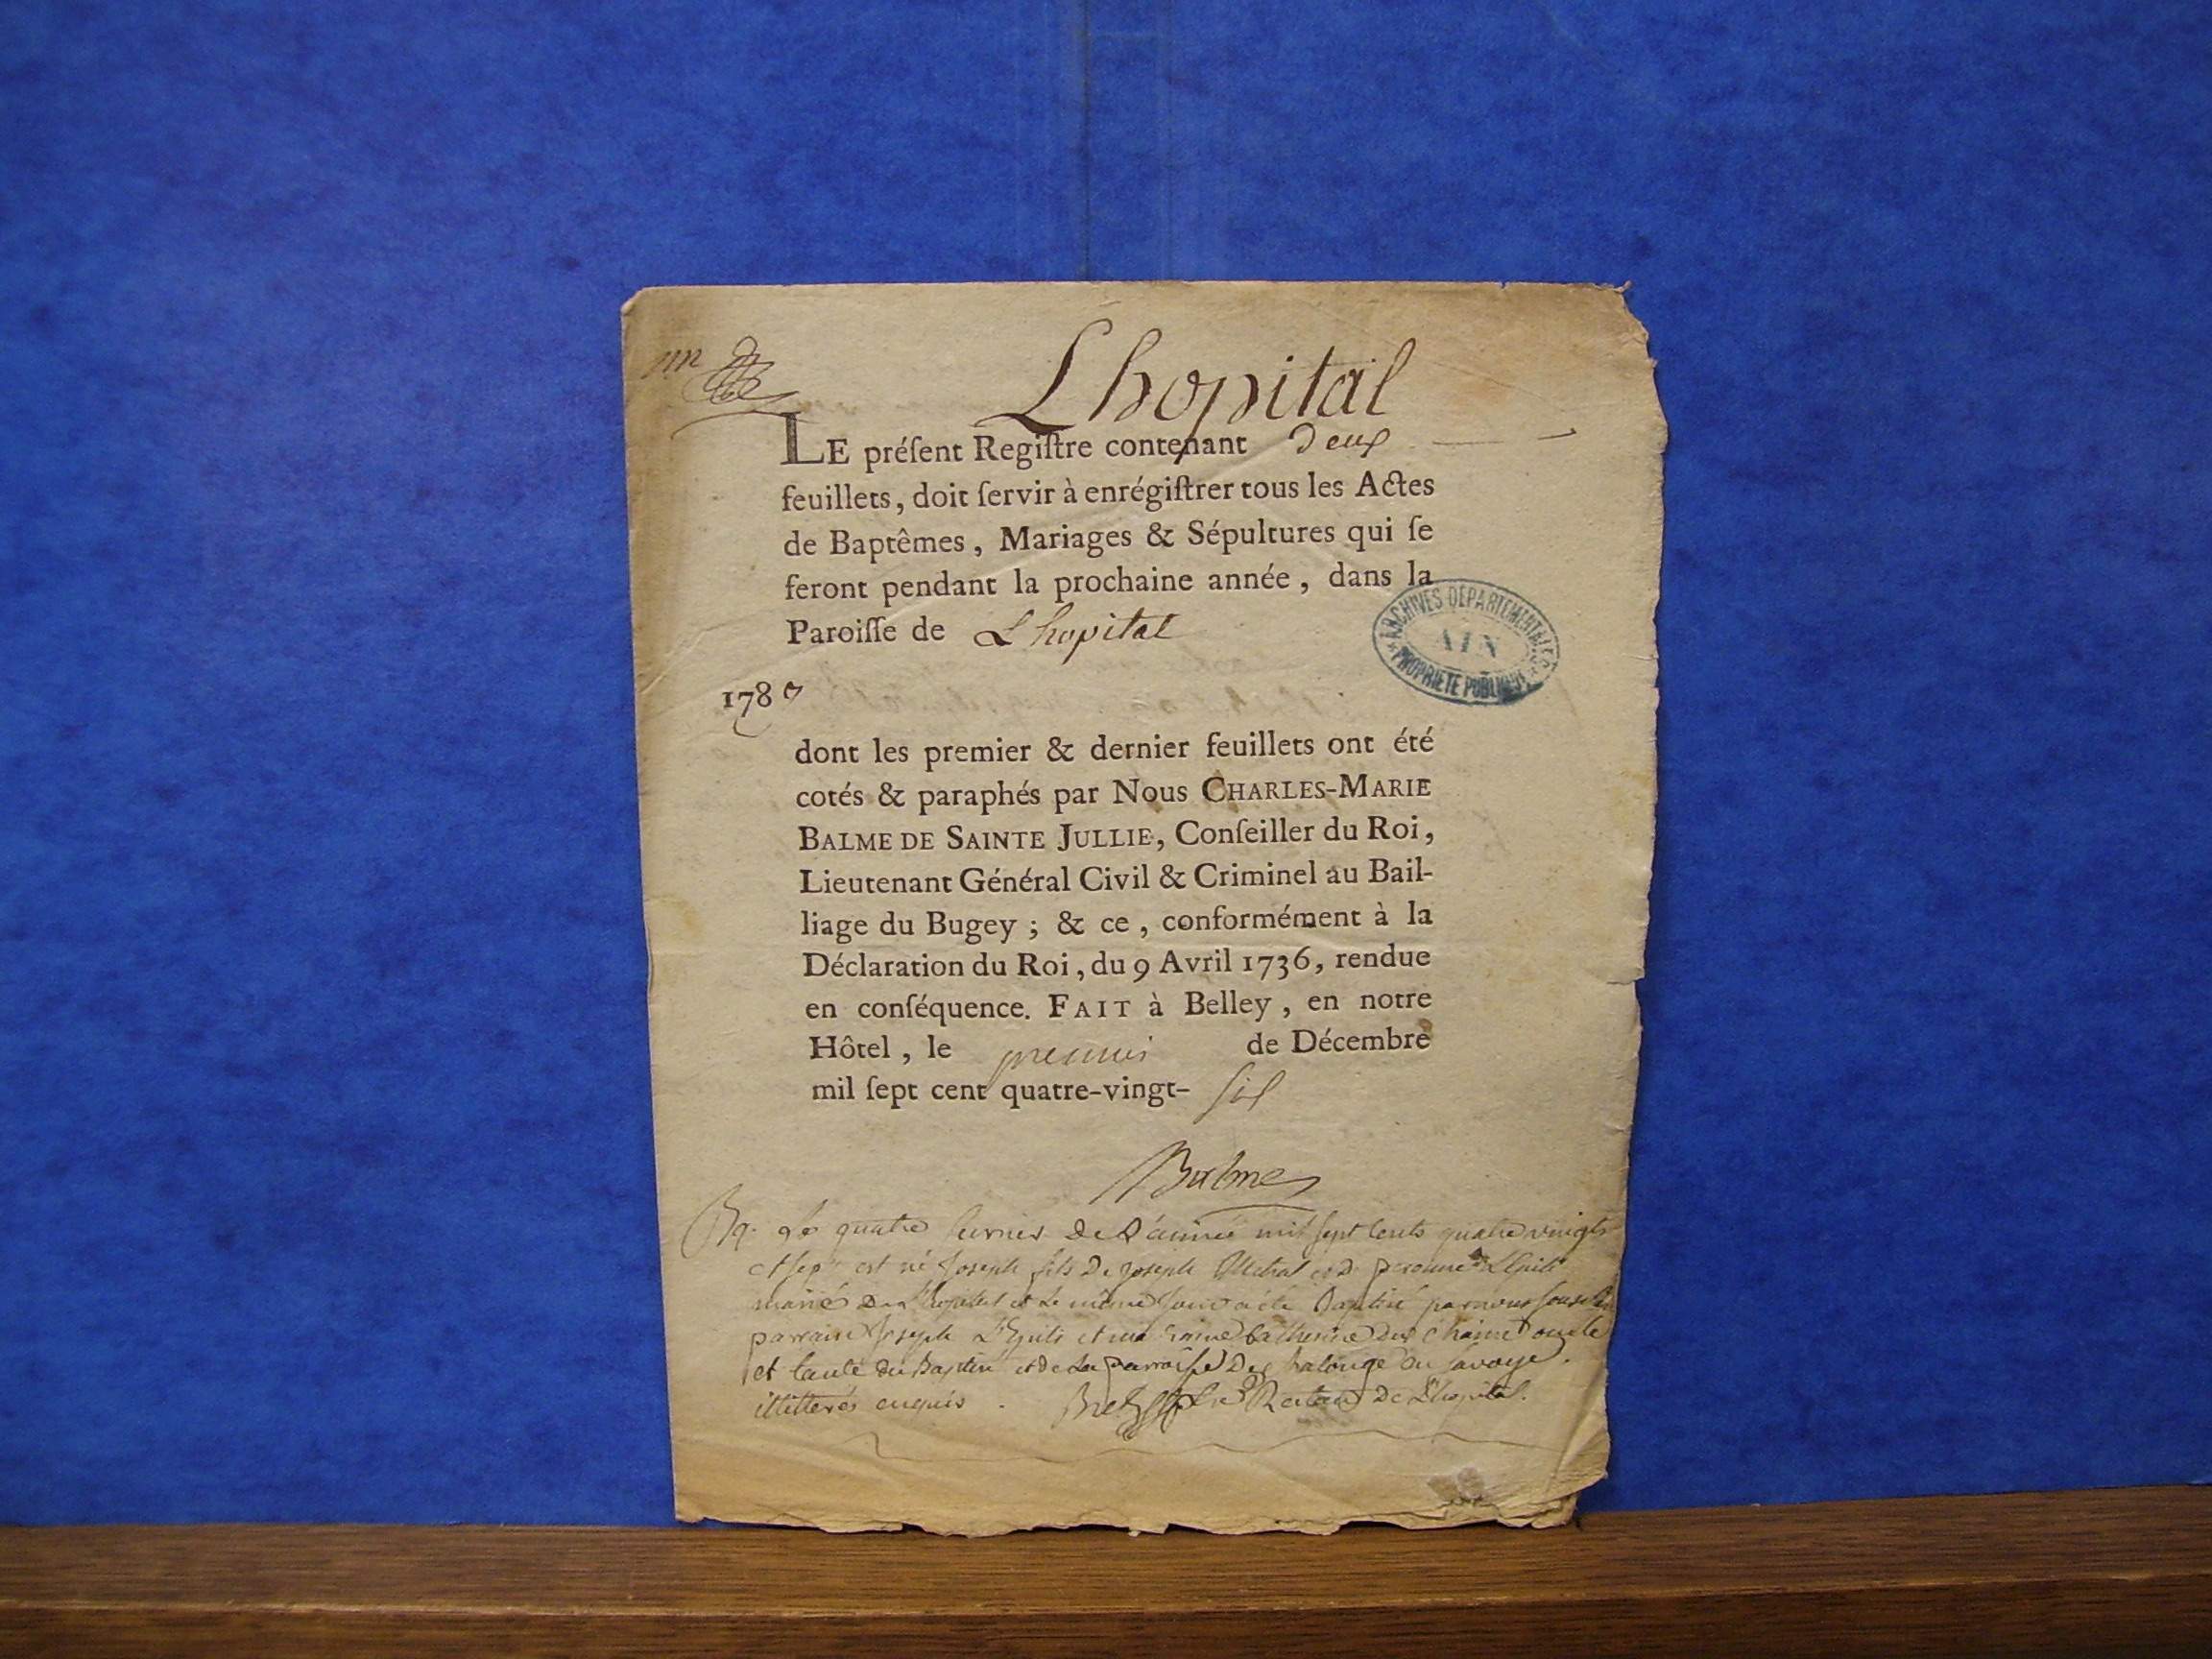 Lhopital
LE préſent Regiſtre contenant deux
feuillets, doit ſervir à enrégiſtrer tous les Actes
de Baptêmes, Mariages & Sépultures qui ſe
feront pendant la prochaine année, dans la
Paroiſſe de Lhopital
ARCHIVES DÉPARTEMENTALES
AIN
PROPRIÉTÉ PUBLIQUE
1787
dont les premier & dernier feuillets ont été
cotés & paraphés par Nous CHARLES-MARIE
BALME DE SAINTE JULLIE, Conſeiller du Roi,
Lieutenant Général Civil & Criminel au Bail-
liage du Bugey ; & ce, conformément à la
Déclaration du Roi, du 9 Avril 1736, rendue
en conſéquence. FAIT à Belley, en notre
Hôtel, le premier de Décembre
mil ſept cent quatre-vingt- six
Balme
Le quatre de l'année mil sept cents quatre vingts
et sept est né Joseph fils de Joseph Metral et de
mariés de Lhopital et le même jour a été Baptisé par nous
parrain Joseph et Catherine oncle
et tante du Baptisé et de la parroisse de en Savoye.
illitterés enquis. de Lhopital.